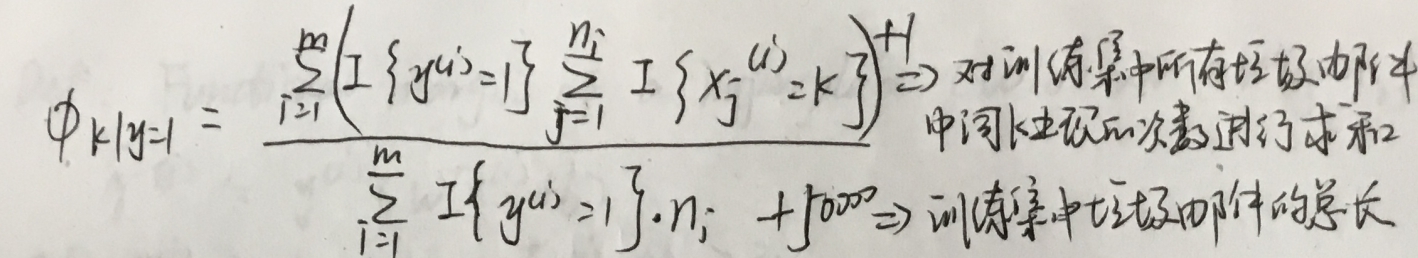 φ_{k|y=1} = \frac{\sum_{i=1}^{m} ( I\{y^{(i)}=1\} \sum_{j=1}^{n_i} I\{x_j^{(i)}=k\} ) + 1}{\sum_{i=1}^{m} I\{y^{(i)}=1\} \cdot n_i + 50000}
⇒ 对训练集中所有垃圾邮件
中词k出现的次数进行求和
⇒ 训练集中垃圾邮件的总长